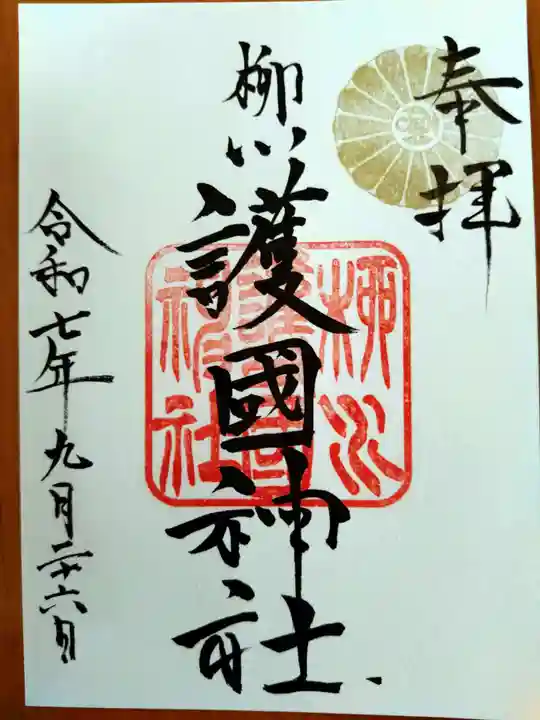 奉拝
柳川護國神社
柳川
護國
神社
令和七年九月二十六日